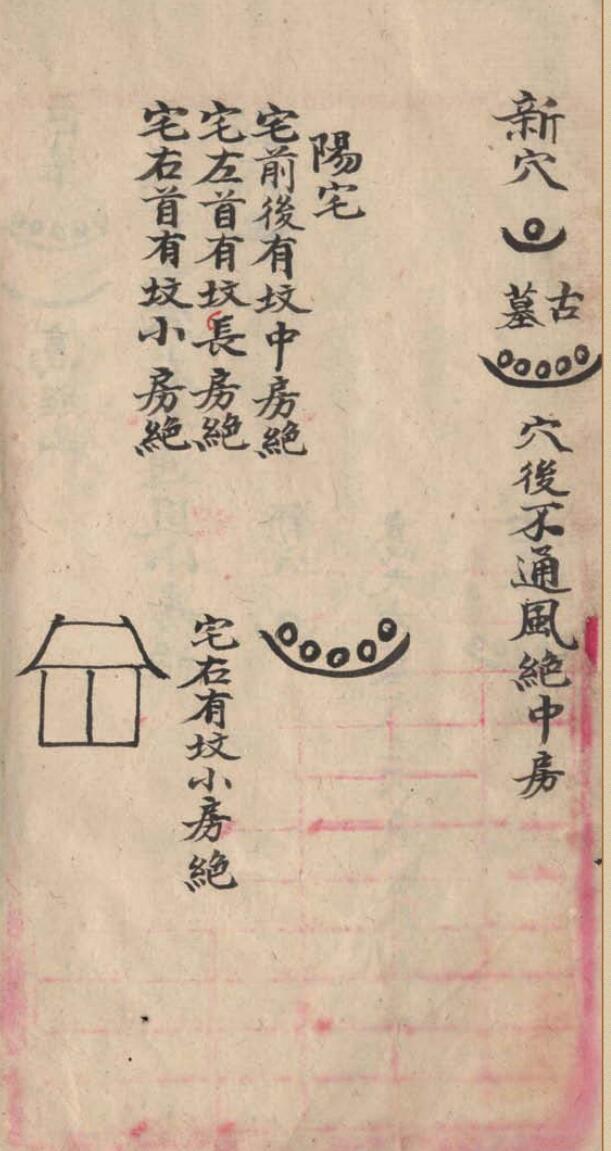 新穴
古墓
穴後不通風絕中房
陽宅
宅前後有坟中房絕
宅左首有坟長房絕
宅右首有坟小房絕
宅右有坟小房絕